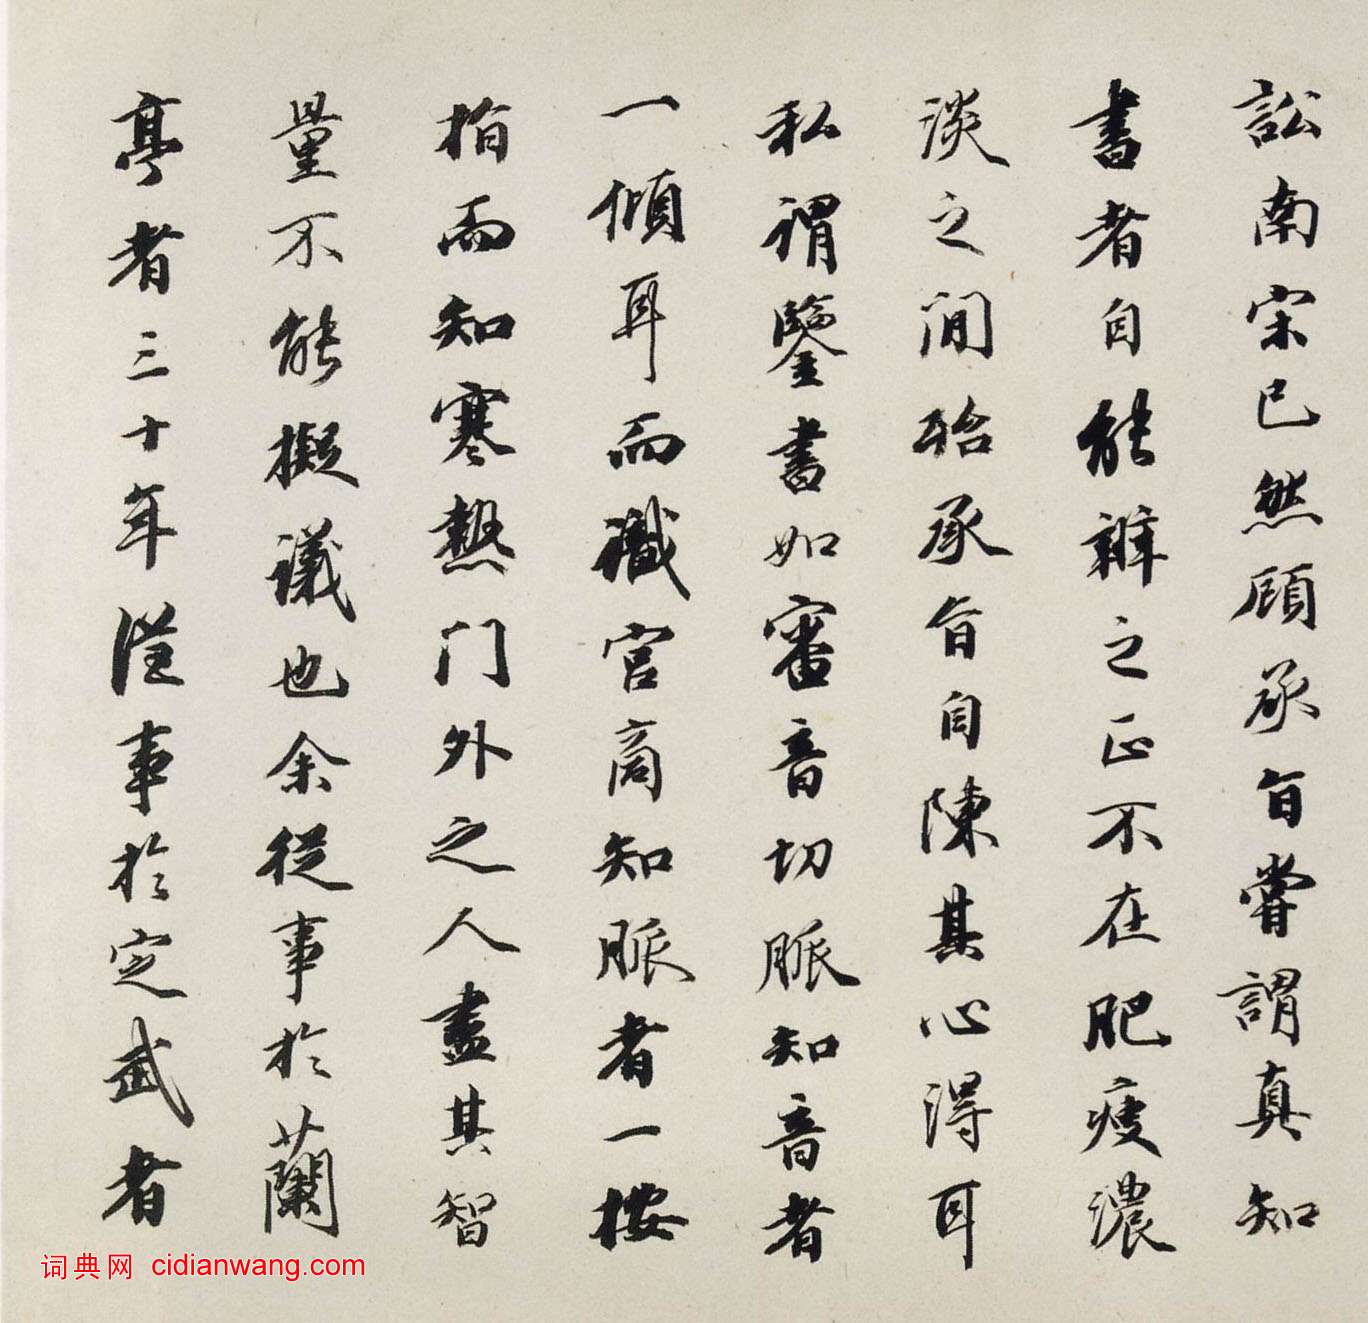 訟南宋已然顧承旨嘗謂真知
書者自能辨之正不在肥瘦濃
淡之間殆承旨自陳其心得耳
私謂鑒書如審音切脈知音者
一傾耳而識宮商知脈者一按
指而知寒熱門外之人盡其智
量不能擬議也余從事於蘭
亭者三十年從事於定武者
词典网 cidianwang.com